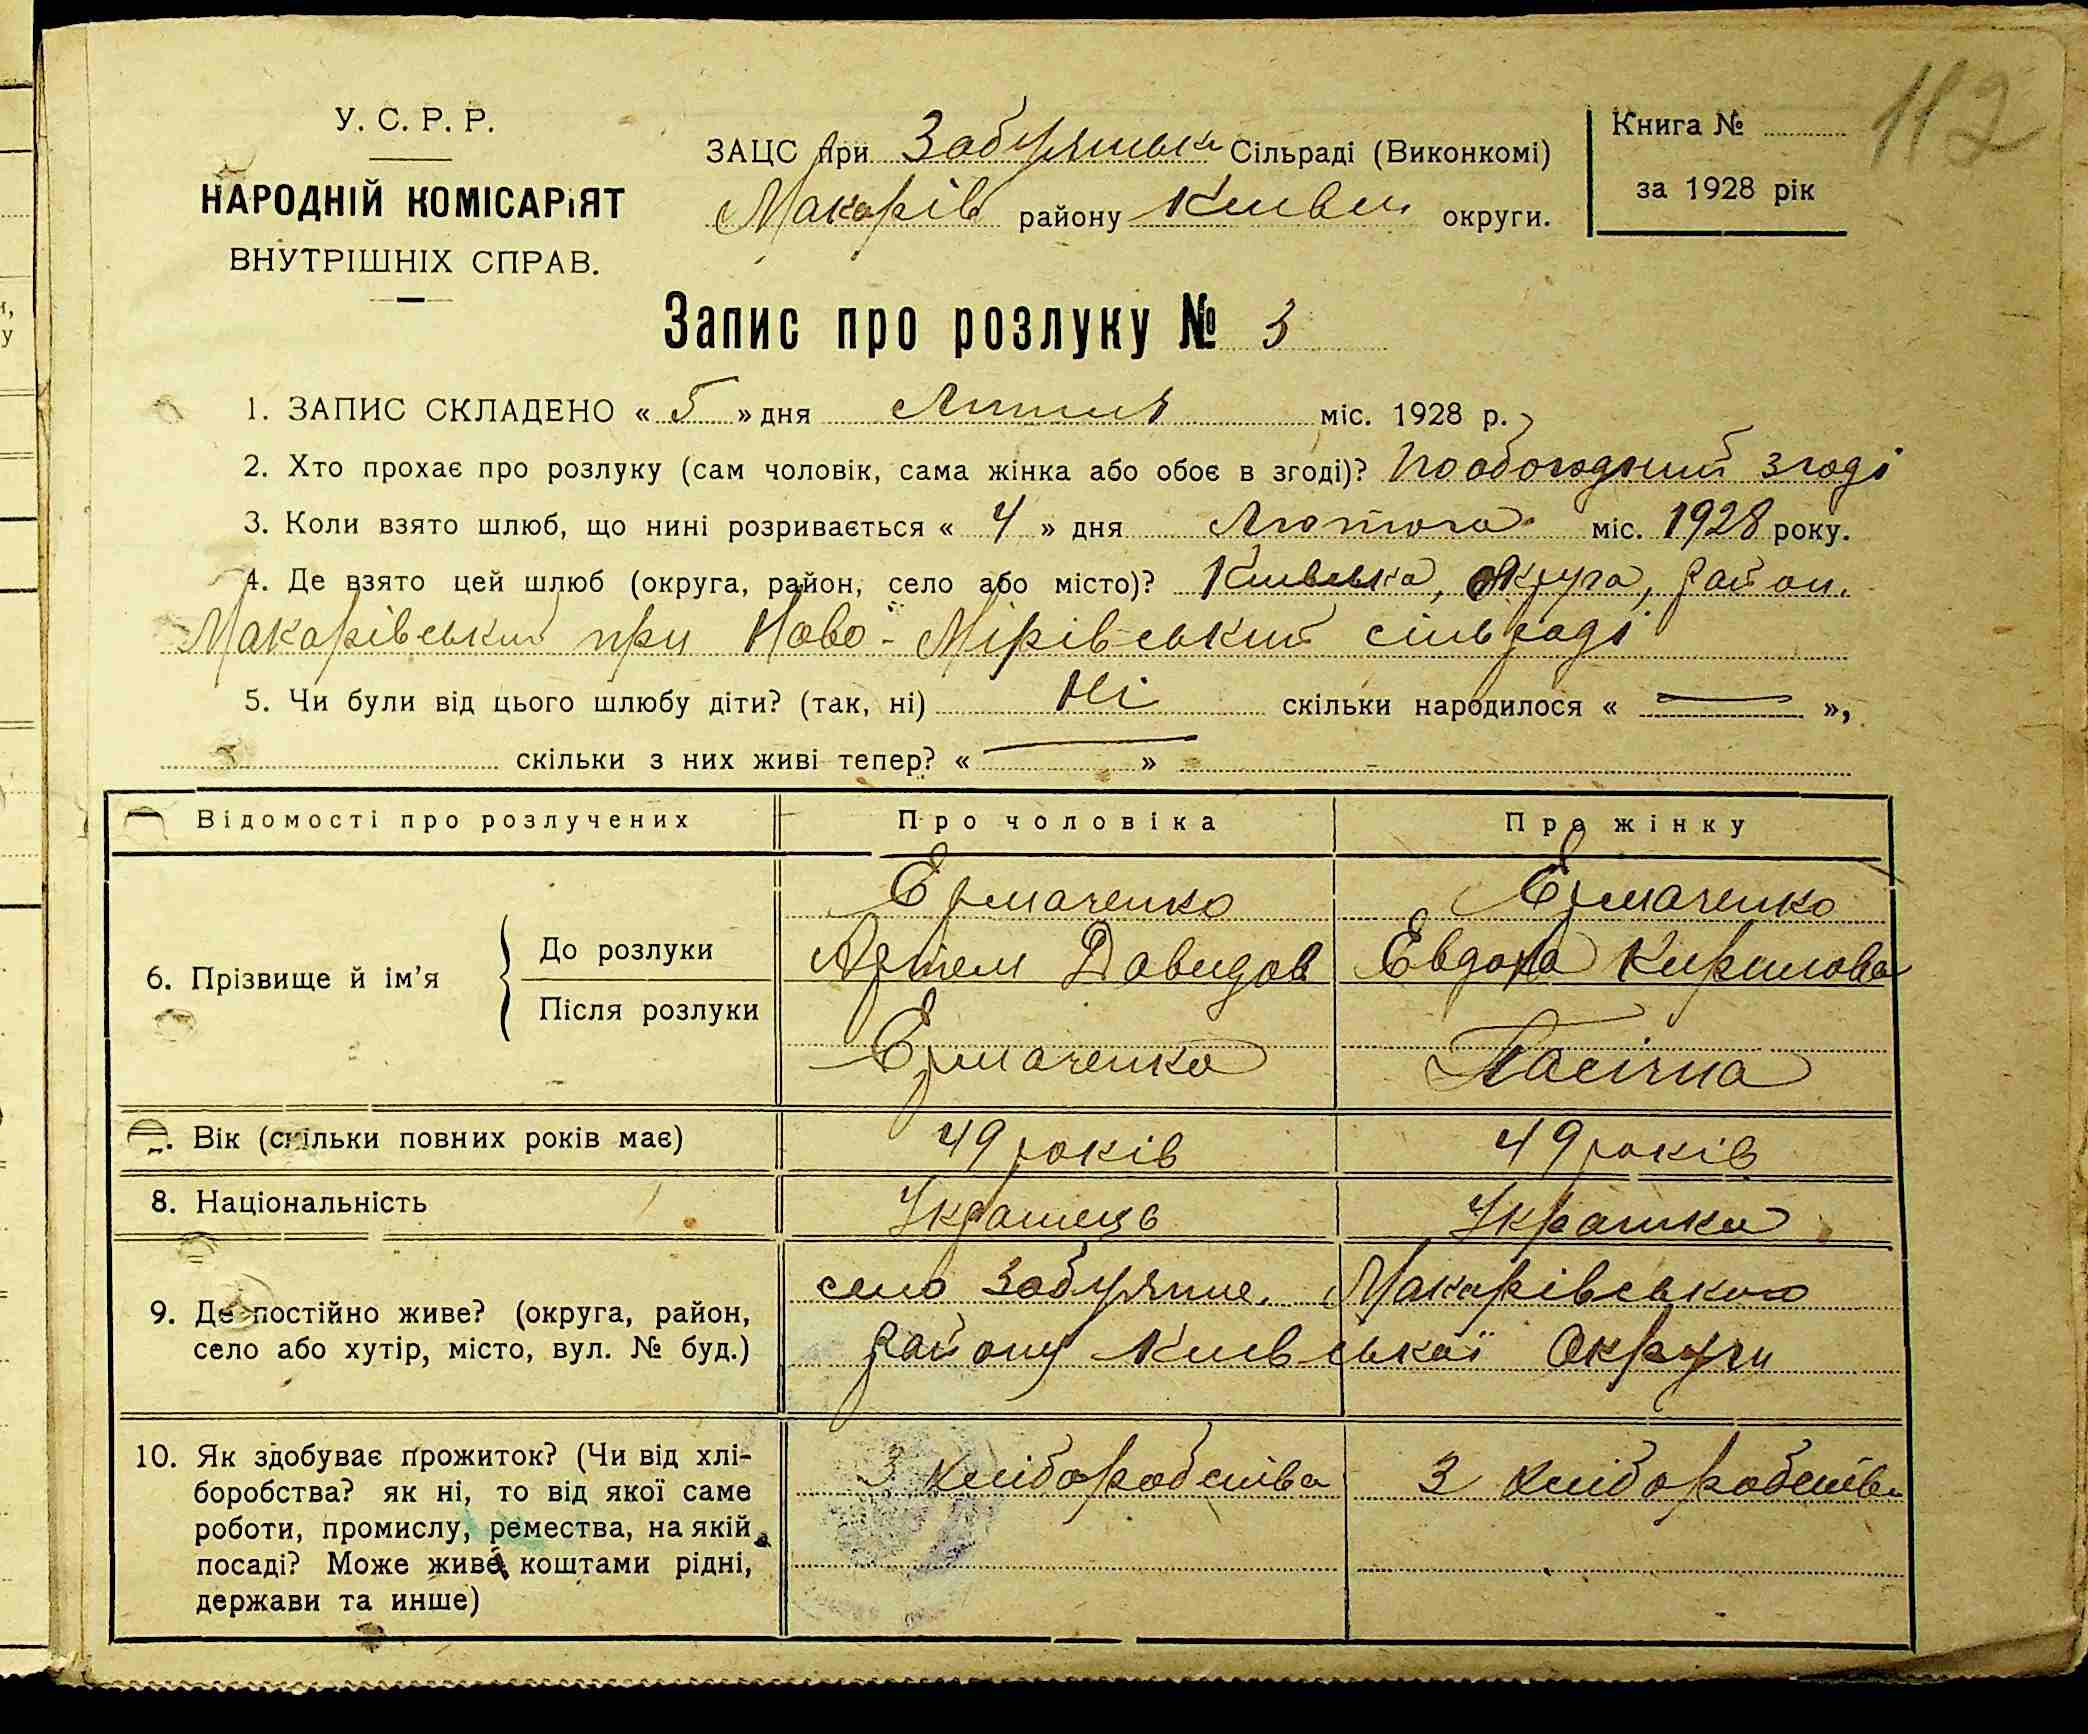 112
У. С. Р. Р.
НАРОДНІЙ КОМІСАРіЯТ
ВНУТРІШНІХ СПРАВ.
ЗАЦС при Забуянськ Сільраді (Виконкомі)
Макарів району Київськ округи.
Книга №
за 1928 рік
Запис про розлуку № 3
1. ЗАПИС СКЛАДЕНО « 5 » дня Липня міс. 1928 р.
2. Хто прохає про розлуку (сам чоловік, сама жінка або обоє в згоді)? По обоюдний згоді
3. Коли взято шлюб, що нині розривається « 4 » дня Лютого міс. 1928 року.
4. Де взято цей шлюб (округа, район, село або місто)? Київська, округа, район.
Макарівський при Ново-Мірівський сільраді
5. Чи були від цього шлюбу діти? (так, ні) Ні скільки народилося « — »,
скільки з них живі тепер? « — »
Відомості про розлучених Про чоловіка Про жінку
6. Прізвище й ім'я
До розлуки
Ермаченко Ермаченко
Артем Давидов Евдоха Кирилова
Після розлуки
Ермаченко Пасічна
7. Вік (скільки повних років має) 49 років 49 років
8. Національність Украінець Украінка
9. Де постійно живе? (округа, район,
село або хутір, місто, вул. № буд.)
село Забуяння, Макарівського
району Київської Округи
10. Як здобуває прожиток? (Чи від хлі-
боробства? як ні, то від якої саме
роботи, промислу, ремества, на якій
посаді? Може живе коштами рідні,
держави та инше)
З хліборобства З хліборобства